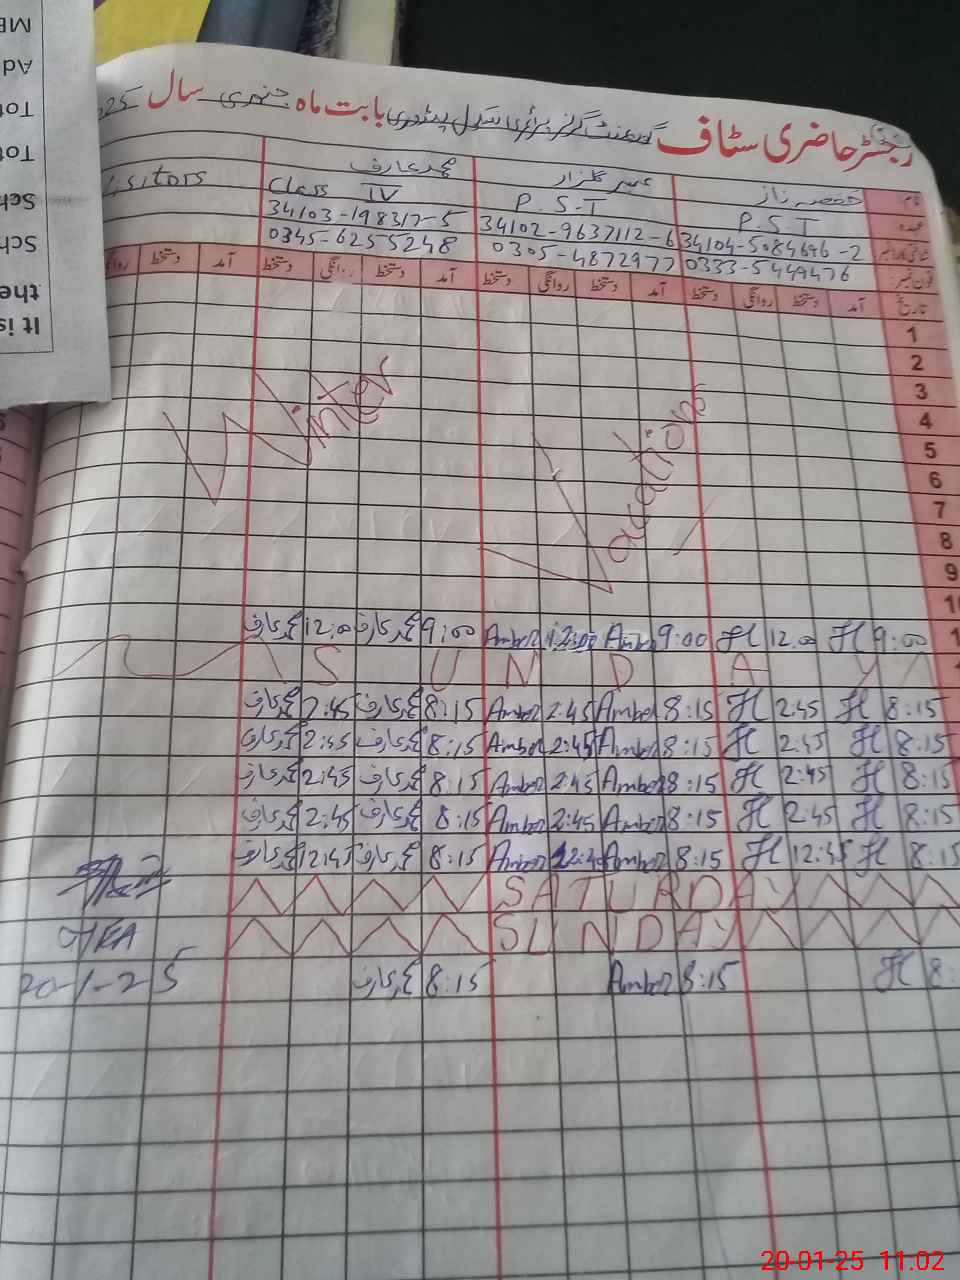 رجسٹر حاضری سٹاف گورنمنٹ گرلز پرائمری سکول بابت ماہ جنوری سال 25
نام:
عنبر گلزار
محمد عارف
عہدہ: P.S.T P.S.T Class IV Visitors
34104-5084646-2 34102-9637112-6 34103-198317-5
فون نمبر: 0333-5449476 0305-4872977 0345-6255248
تاریخ آمد دستخط روانگی دستخط آمد دستخط روانگی دستخط آمد دستخط روانگی دستخط آمد دستخط
1
2
3
4
5
6
7
8
9
Winter Vacations
9:00 H 12:00 H 9:00 Amber 12:00 Amber 9:00 محمد عارف 12:00 محمد عارف
SUNDAY
8:15 H 2:45 H 8:15 Amber 2:45 Amber 8:15 محمد عارف 2:45 محمد عارف
8:15 H 2:45 H 8:15 Amber 2:45 Amber 8:15 محمد عارف 2:45 محمد عارف
8:15 H 2:45 H 8:15 Amber 2:45 Amber 8:15 محمد عارف 2:45 محمد عارف
8:15 H 2:45 H 8:15 Amber 2:45 Amber 8:15 محمد عارف 2:45 محمد عارف
8:15 H 12:45 H 8:15 Amber 12:45 Amber 8:15 محمد عارف 12:45 محمد عارف
SATURDAY
SUNDAY
8: H 8:15 Amber 8:15 محمد عارف
20-1-25
It is
the
20-01-25 11.02